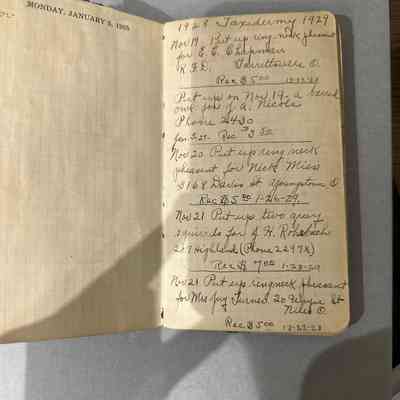 MONDAY, JANUARY 5, 1905
1928 Taxidermy 1929
Nov 19. Put up ring-neck pheasant
for E. E. Chapman
R.F.D. O.
Rec $5.00 12-22-28
Put up on Nov. 19. a barred
owl for J. A. Nicols
Phone 2430
Jan. 5-29. Rec $3.50
Nov 20 Put up ring neck
pheasant for Nick Miss
3168 Davis St Youngstown, O
Rec $5.00 1-26-29.
Nov 21 Put up two gray
squirrels for J. H.
207 Highland (Phone 2297X)
Rec $7.00 1-23-29
Nov 21 Put up ringneck pheasant
for Mrs Jay Turner 20 Wayne St
Niles O.
Rec $5.00 12-22-28